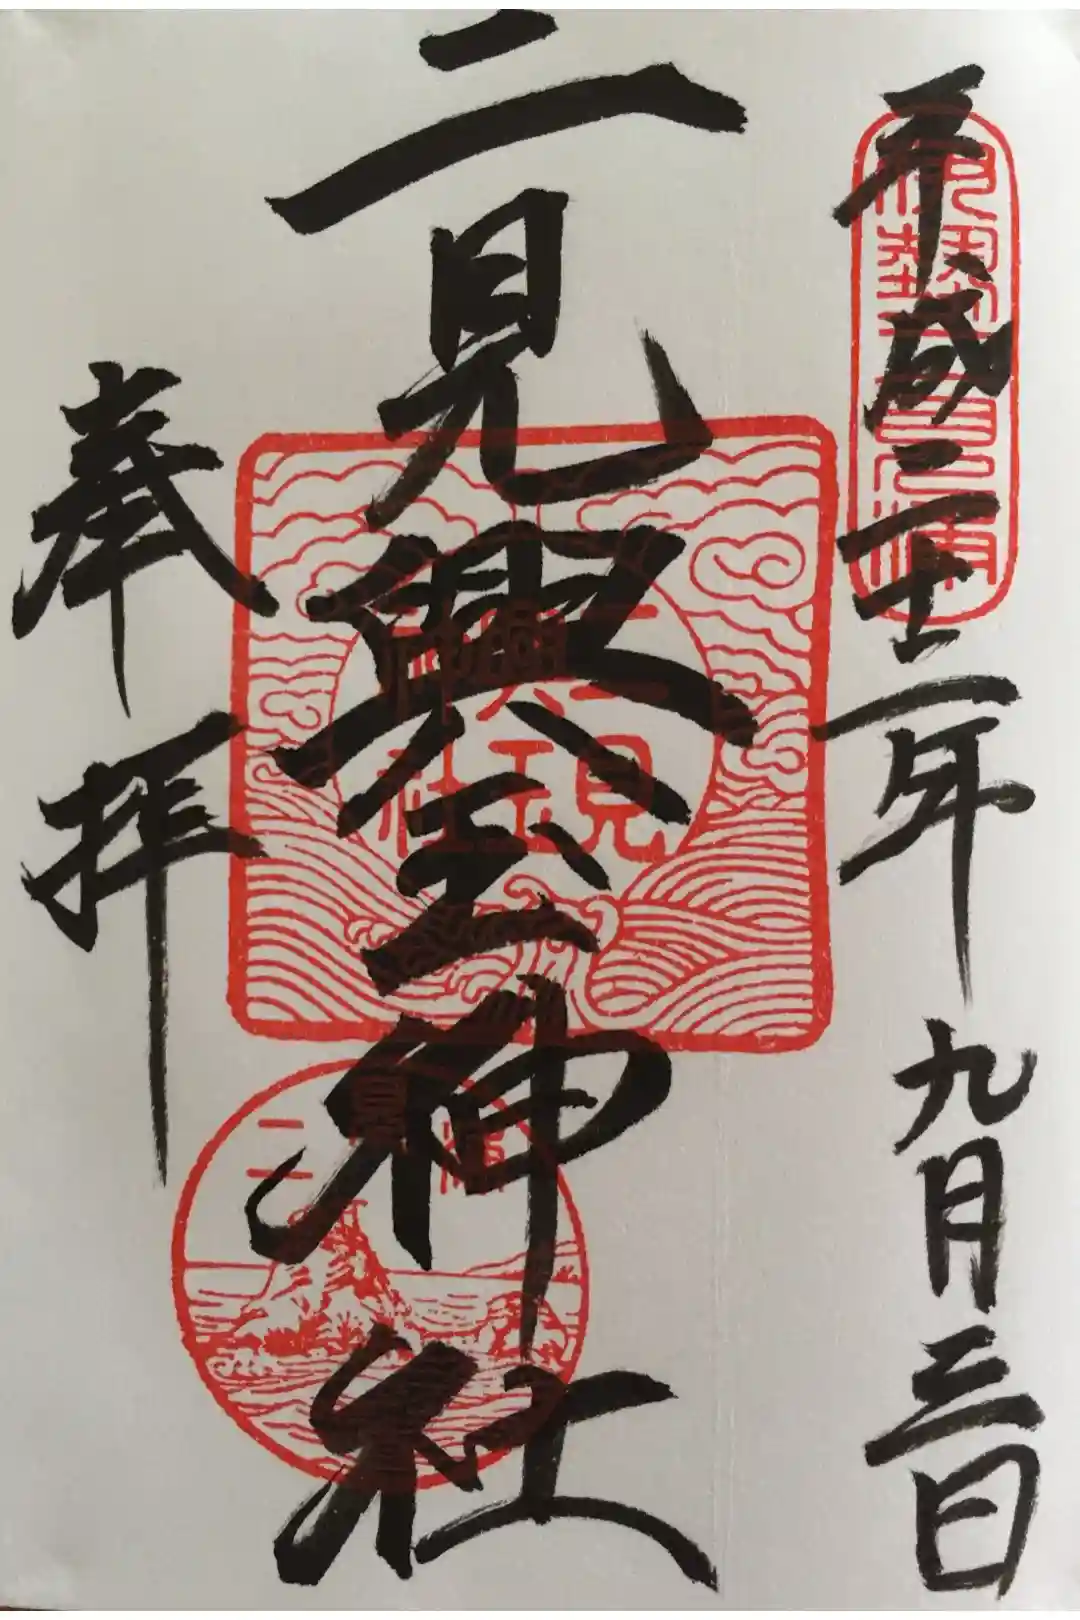 平成二十二年九月三日
伊勢二見浦
二見興玉神社
二見
興玉
神社
二見浦
奉拝